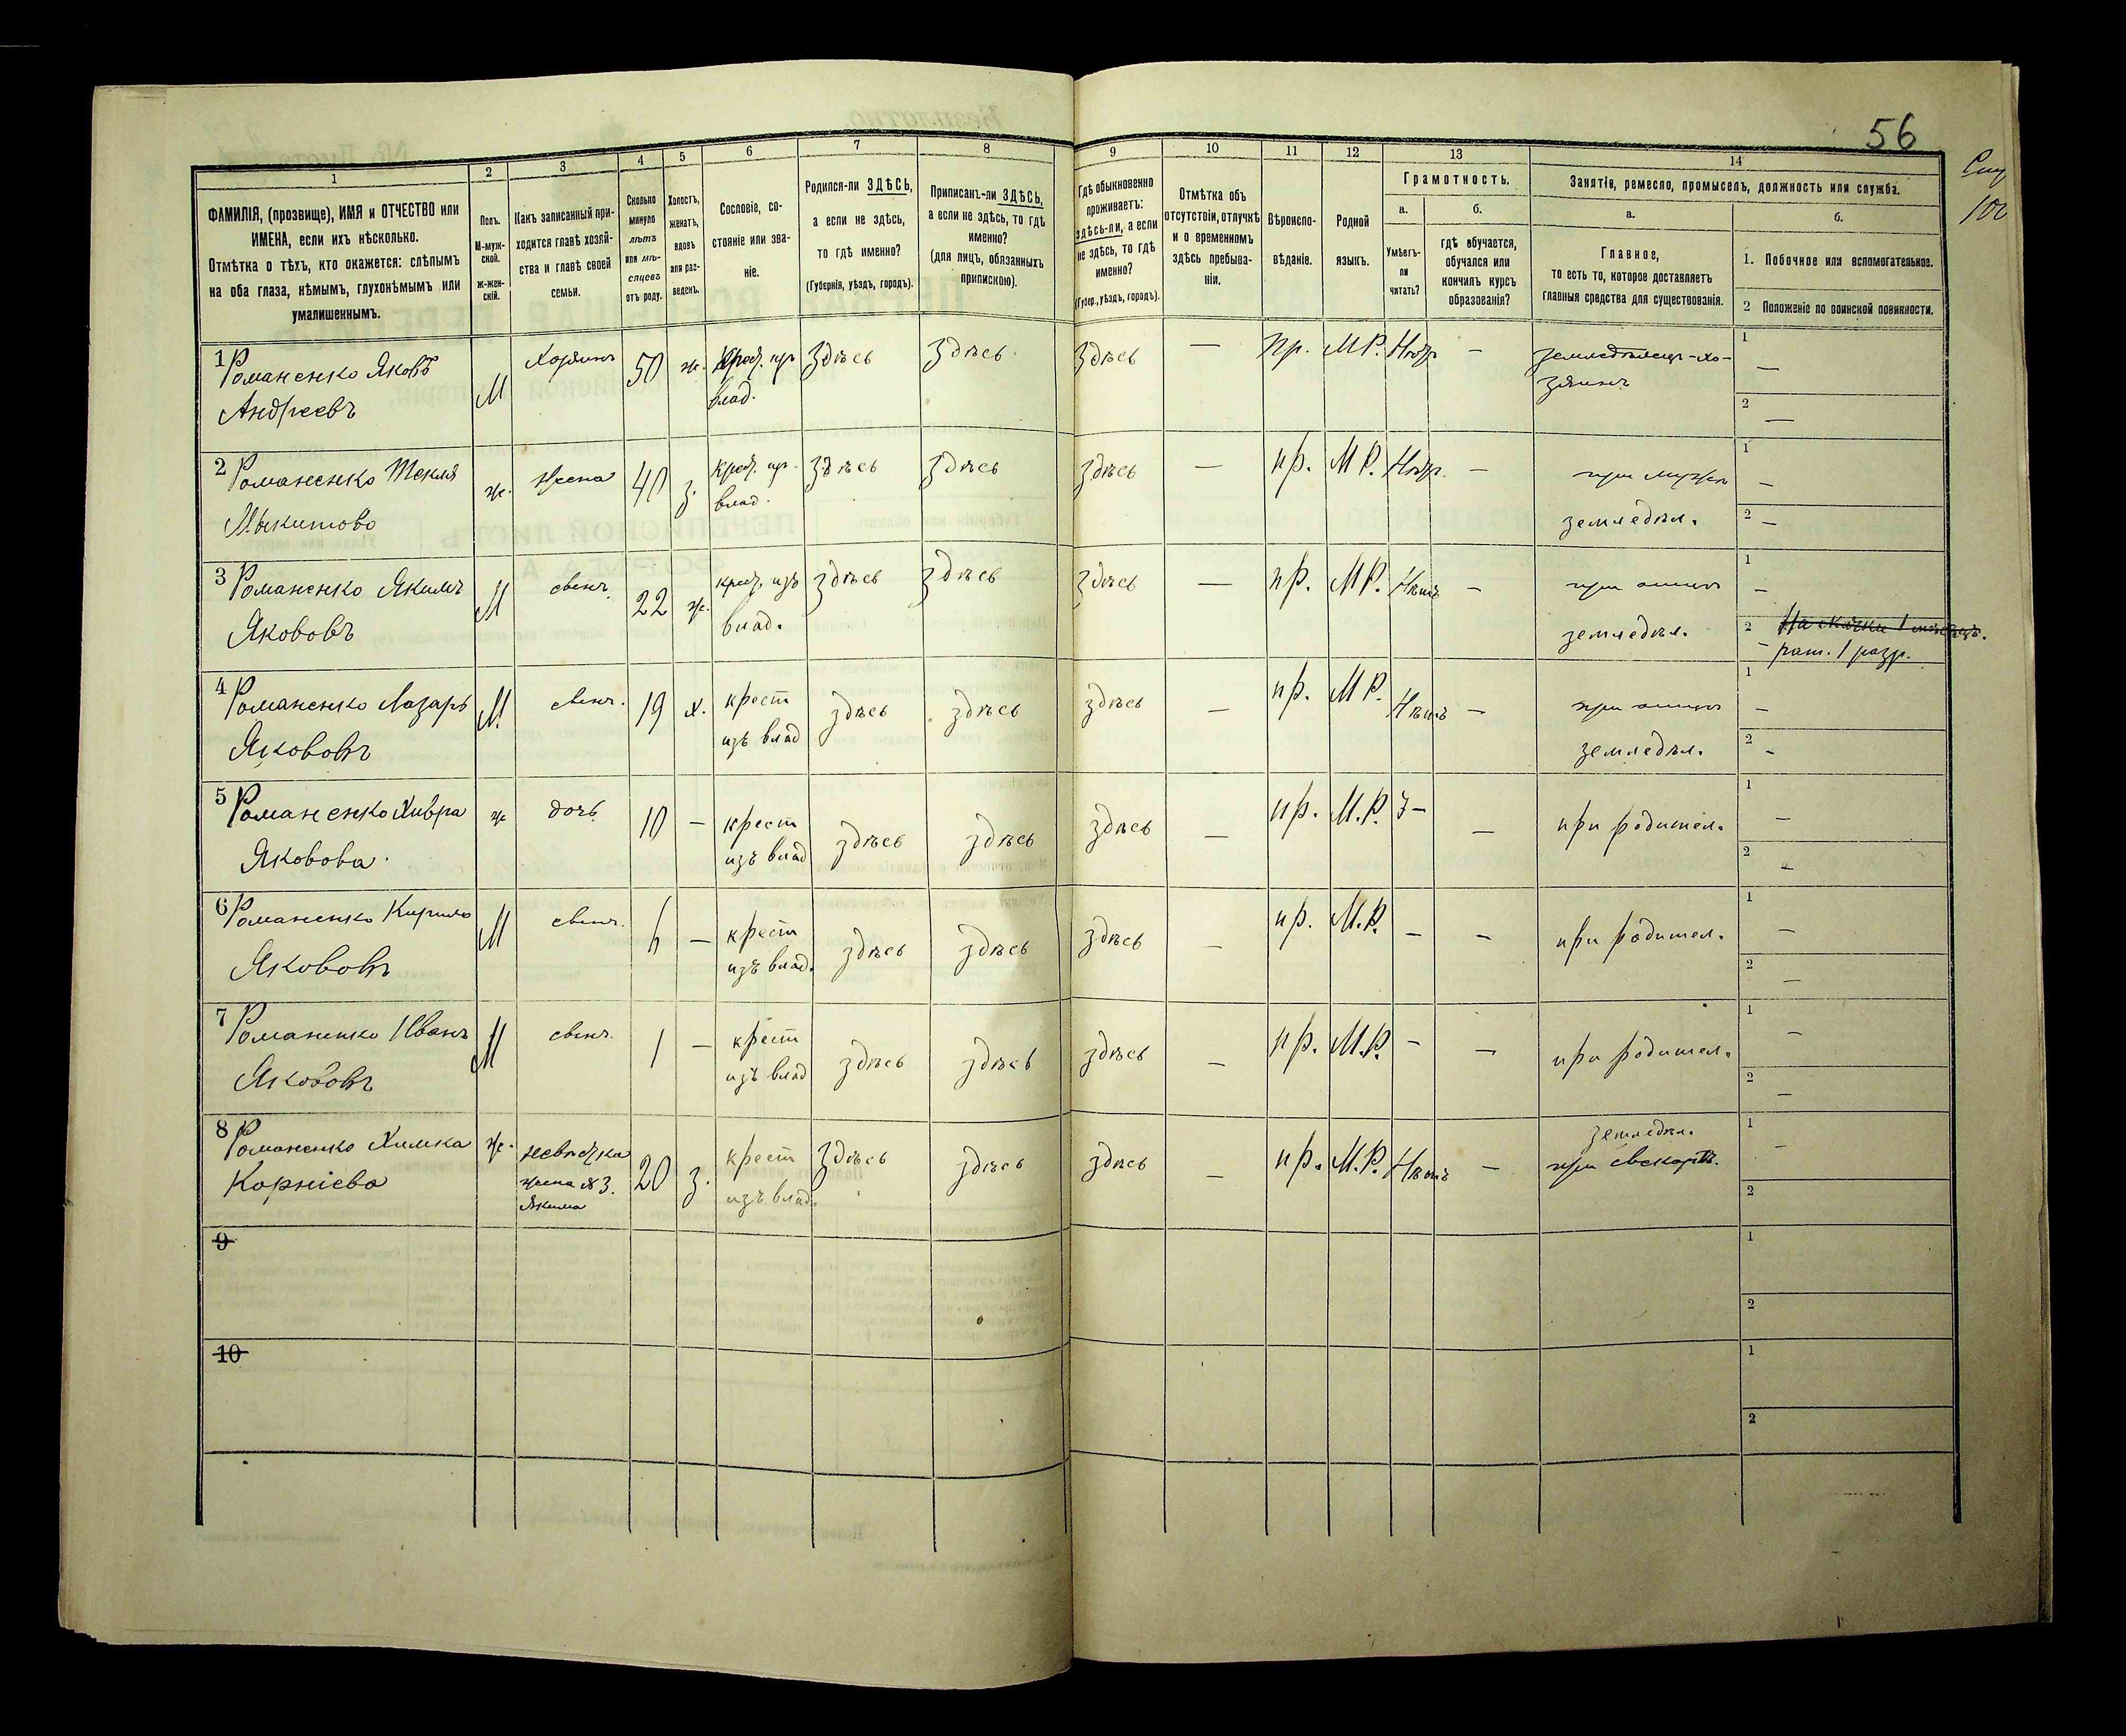 56
1
2
3
4
5
6
7
8
9
10
11
12
13
14
ФАМИЛІЯ, (прозвище), ИМЯ и ОТЧЕСТВО или
ИМЕНА, если ихъ нѣсколько.
Отмѣтка о тѣхъ, кто окажется: слѣпымъ
на оба глаза, нѣмымъ, глухонѣмымъ или
умалишеннымъ.
Полъ.
М-муж-
ской.
ж-жен-
скій.
Какъ записанный при-
ходится главѣ хозяй-
ства и главѣ своей
семьи.
Сколько
минуло
лѣтъ
или мѣ-
сяцевъ
отъ роду.
Холостъ,
женатъ,
вдовъ
или раз-
веденъ.
Сословіе, со-
стояніе или зва-
ніе.
Родился-ли ЗДѢСЬ,
а если не здѣсь,
то гдѣ именно?
(Губернія, уѣздъ, городъ).
Приписанъ-ли ЗДѢСЬ,
а если не здѣсь, то гдѣ
именно?
(для лицъ, обязанныхъ
припискою).
Гдѣ обыкновенно
проживаетъ:
здѣсь-ли, а если
не здѣсь, то гдѣ
именно?
(Губер., уѣздъ, городъ).
Отмѣтка объ
отсутствіи, отлучкѣ
и о временномъ
здѣсь пребыва-
ніи.
Вѣроиспо-
вѣданіе.
Родной
языкъ.
Грамотность.
а.
Умѣетъ-
ли
читать?
б.
гдѣ обучается,
обучался или
кончилъ курсъ
образованія?
Занятія, ремесло, промыселъ, должность или служба.
а.
Главное,
то есть то, которое доставляетъ
главныя средства для существованія.
б.
1. Побочное или вспомогательное.
2 Положеніе по воинской повинности.
1 Романенко Яковъ
Андреевъ
М
Хозяинъ
50
ж.
Крест. изъ
влад.
Здѣсь
Здѣсь
Здѣсь
—
Пр.
М.Р.
Нѣтъ
—
земледѣлецъ-хо-
зяинъ
1
—
2
—
2 Романенко Текля
Мыкитово
ж.
Жена
40
з.
Крест. изъ
влад.
Здѣсь
Здѣсь
Здѣсь
—
пр.
М Р.
Нѣтъ
—
при мужѣ
земледѣл.
1
—
2
—
3 Романенко Якимъ
Якововъ
М
сынъ.
22
ж.
крест. изъ
влад.
здѣсь
здѣсь
здѣсь
—
пр.
М Р.
Нѣтъ
—
при отцѣ
земледѣл.
1
—
2
— рат. 1 разр.
4 Романенко Лазарь
Якововъ
М
сынъ.
19
х.
крест
изъ влад
здѣсь
здѣсь
здѣсь
—
пр.
М Р.
Нѣтъ
—
при отцѣ
земледѣл.
1
—
2
—
5 Романенко Хивра
Яковова
ж
дочь
10
—
крест
изъ влад
здѣсь
здѣсь
здѣсь
—
пр.
М.Р.
—
при родител.
1
—
2
6 Романенко Кирило
Якововъ
М
сынъ.
—
крест
изъ влад.
здѣсь
здѣсь
здѣсь
—
пр.
М.Р.
—
—
при родител.
1
—
2
—
7 Романенко Иванъ
Якововъ
М
сынъ.
1
—
крест
изъ влад
здѣсь
здѣсь
здѣсь
—
пр.
М.Р.
—
—
при родител.
1
—
2
—
8 Романенко Химка
Корніева
ж.
невѣстка
жена № 3.
Якима
20
з.
крест
изъ влад.
Здѣсь
здѣсь
здѣсь
—
пр.
М.Р.
Нѣтъ
—
земледѣл.
при свекорѣ.
1
—
2
9
1
2
10
1
2